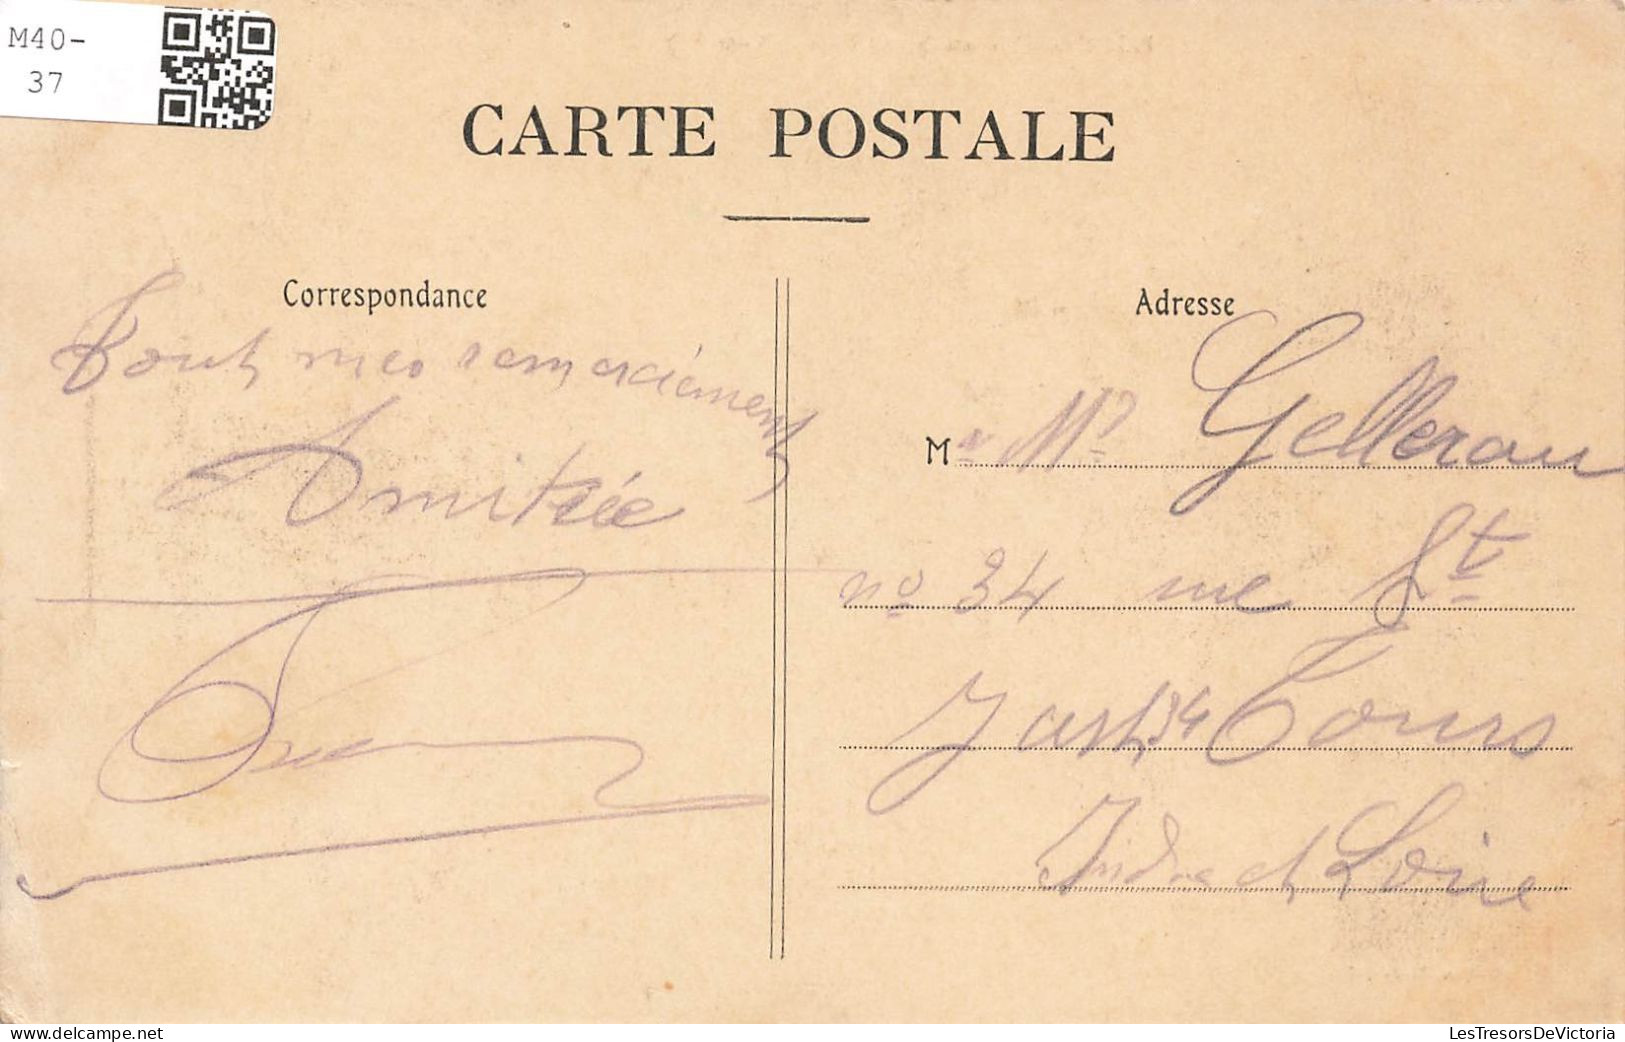 M40-
37
CARTE POSTALE
Correspondance
Tout mes remerciement
Amitiée
Adresse
M
Gellerau
no 34 rue St
Just 34 Tours
Indre et Loire
delcampe.net
LesTresorsDeVictoria